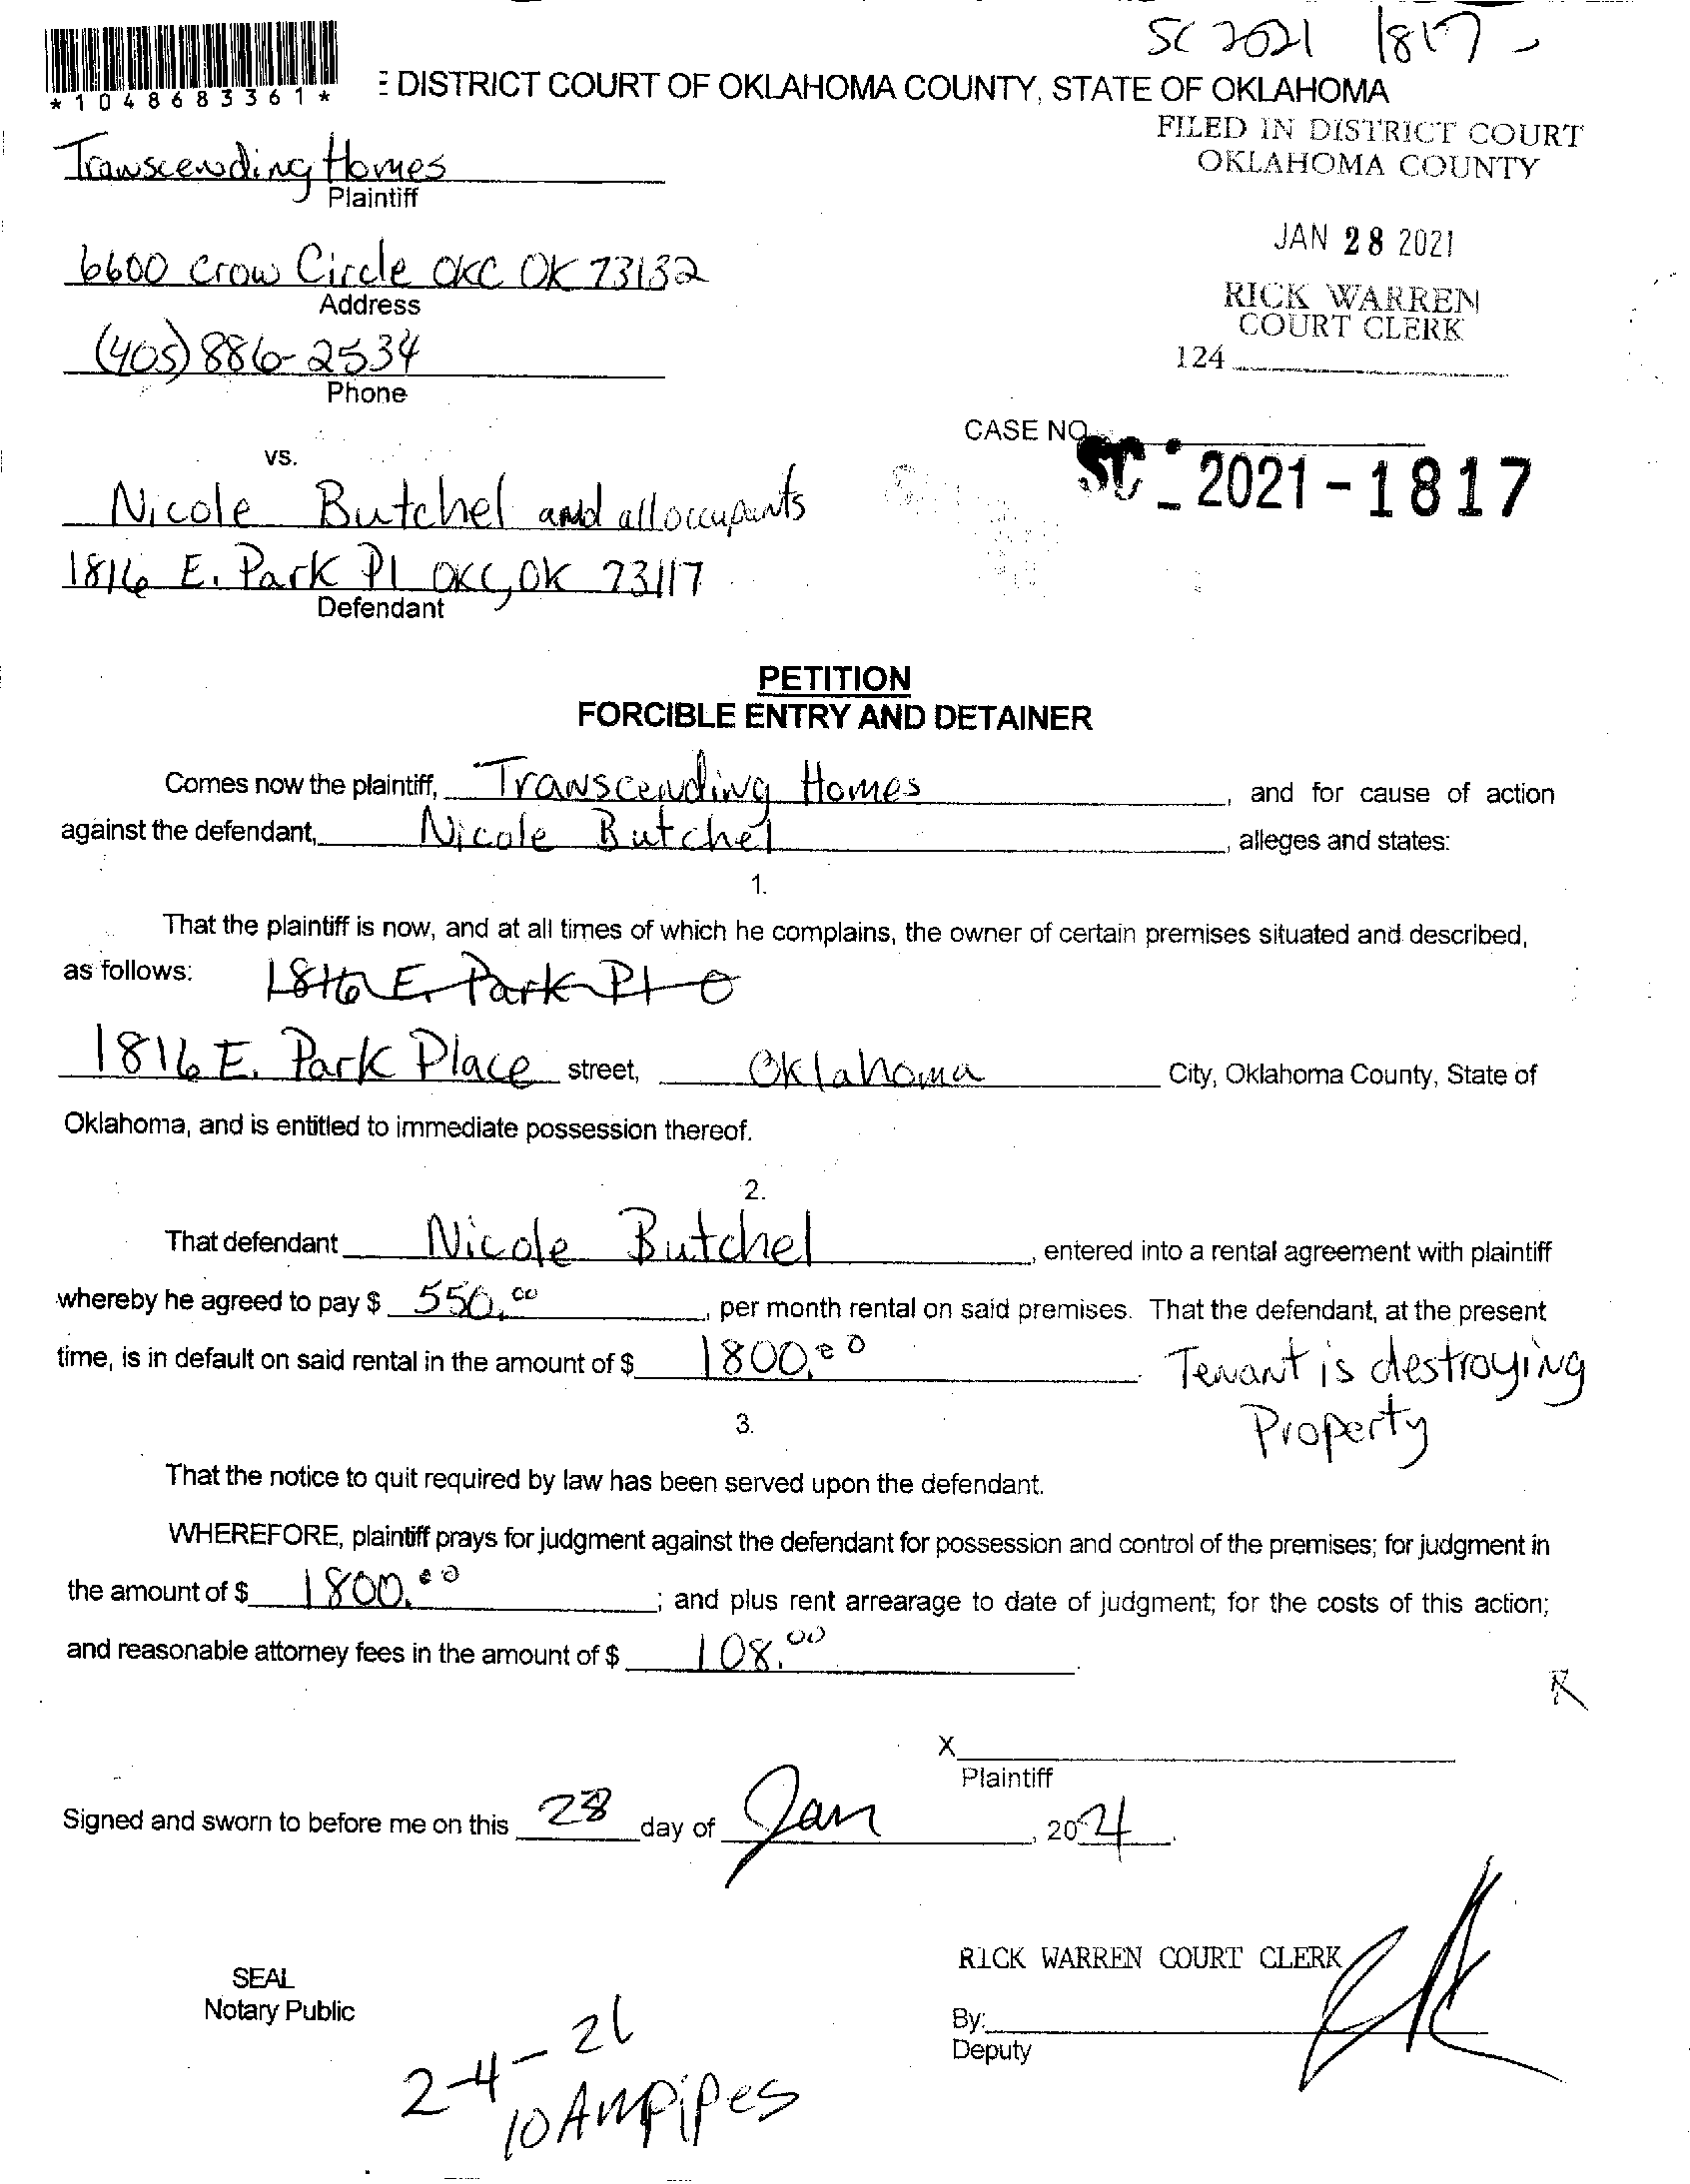 SC 2021 1817-
*1048683361*
E DISTRICT COURT OF OKLAHOMA COUNTY, STATE OF OKLAHOMA
FILED IN DISTRICT COURT
OKLAHOMA COUNTY
Transcending Homes
Plaintiff
JAN 28 2021
6600 Crow Circle OKC OK 73132
Address
RICK WARREN
COURT CLERK
(405) 886-2534
124
Phone
CASE NO.
SC - 2021 - 1817
vs.
Nicole Butchel and all occupants
1816 E. Park Pl OKC, OK 73117
Defendant
PETITION
FORCIBLE ENTRY AND DETAINER
Comes now the plaintiff, Transcending Homes, and for cause of action
against the defendant, Nicole Butchel, alleges and states:
1.
That the plaintiff is now, and at all times of which he complains, the owner of certain premises situated and described,
as follows: 1816 E. Park Pl O
1816 E. Park Place street, Oklahoma City, Oklahoma County, State of
Oklahoma, and is entitled to immediate possession thereof.
2.
That defendant Nicole Butchel, entered into a rental agreement with plaintiff
whereby he agreed to pay $ 550.00, per month rental on said premises. That the defendant, at the present
time, is in default on said rental in the amount of $ 1800.00.
Tenant is destroying
Property
3.
That the notice to quit required by law has been served upon the defendant.
WHEREFORE, plaintiff prays for judgment against the defendant for possession and control of the premises; for judgment in
the amount of $ 1800.00; and plus rent arrearage to date of judgment; for the costs of this action;
and reasonable attorney fees in the amount of $ 108.00.
X
Plaintiff
Signed and sworn to before me on this 28 day of Jan, 2021.
RICK WARREN COURT CLERK
SEAL
Notary Public
By:
Deputy
2-4-21
10 AM pipes